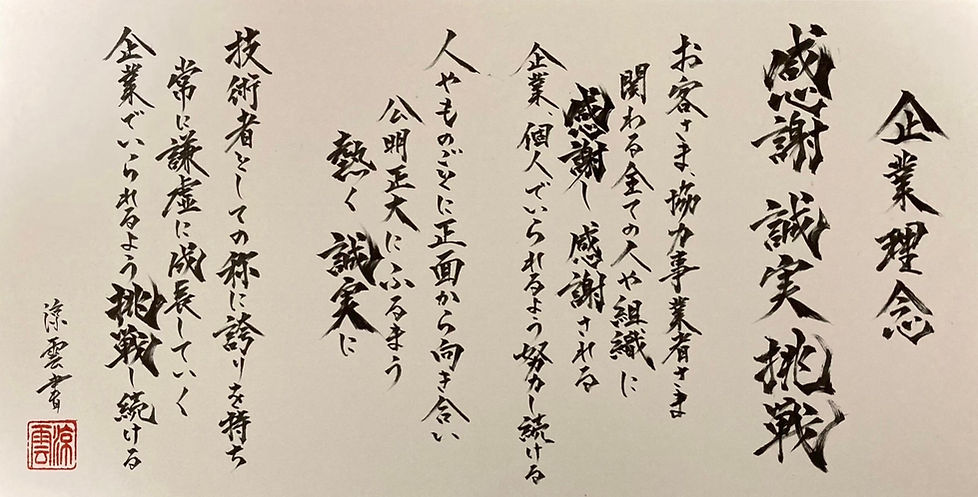 企業理念
感謝 誠実 挑戦
お客さま、協力事業者さま
関わる全ての人や組織に
感謝し 感謝される
企業、個人でいられるよう努力し続ける
人やものごとに正面から向き合い
公明正大にふるまう
熱く 誠実に
技術者としての称に誇りを持ち
常に謙虚に成長していく
企業でいられるよう挑戦し続ける
涼雲書
涼雲